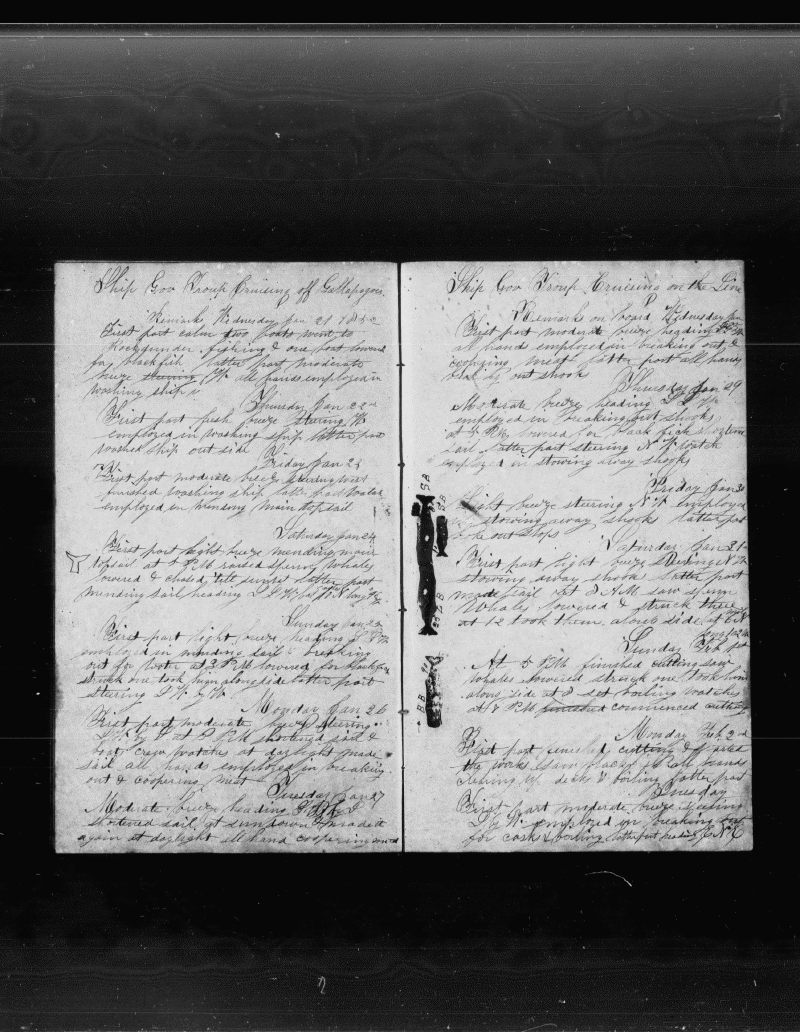 Ship Gov Troup Cruising off Gallapagos
Remarks Wednesday Jan 21 1852
First part calm two boats went to
Rock fishing & one boat lowered
for blackfish latter part moderate
breeze steering W all hands employed in
washing ship
Thursday Jan 22
First part fresh breeze steering W
employed in washing ship latter part
washed ship out side
Friday Jan 23
First part moderate breeze steering west
finished washing ship latter part
employed in mending main topsail
Saturday Jan 24
First part light breeze mending main
topsail at 5 PM raised sperm whales
lowered & chased till sunset latter part
mending sail heading
Sunday Jan 25
First part light breeze heading
employed in mending sail & breaking
out for water at 3 PM lowered for blackfish
struck one took him alongside latter part
steering S W by W
Monday Jan 26
First part moderate breeze steering
at 6 PM shortened sail &
boat crew watches at daylight made
sail all hands employed in breaking
out & coopering meat
Tuesday Jan 27
Moderate breeze heading
shortened sail at sundown & made it
again at daylight all hand coopering meat
Ship Gov Troup Cruising on the Line
Remarks on board Wednesday Jan
First part moderate breeze heading
all hands employed in breaking out &
coopering meat latter part all hands
out shook
Thursday Jan 29
Moderate breeze heading
employed in breaking out shooks
at 5 PM lowered for black fish shortened
sail latter part steering N W watch
employed in stowing away shooks
Friday Jan 30
Light breeze steering N W employed
in stowing away shooks latter part
broke out slops
Saturday Jan 31
First part light breeze steering
stowing away shooks latter part
made sail at 8 AM saw sperm
whales lowered & struck three
at 12 took them along side at
Sunday Feb 1st
At 5 PM finished cutting saw
whales lowered struck one took him
along side at 8 set boiling watches
at 7 PM finished commenced cutting
Monday Feb 2nd
First part finished cutting & started
the works saw hands
clearing up decks & boiling latter part
Tuesday
First part moderate breeze steering
S by W employed in breaking out
for casks & boiling latter part heading
S B
S B
B B